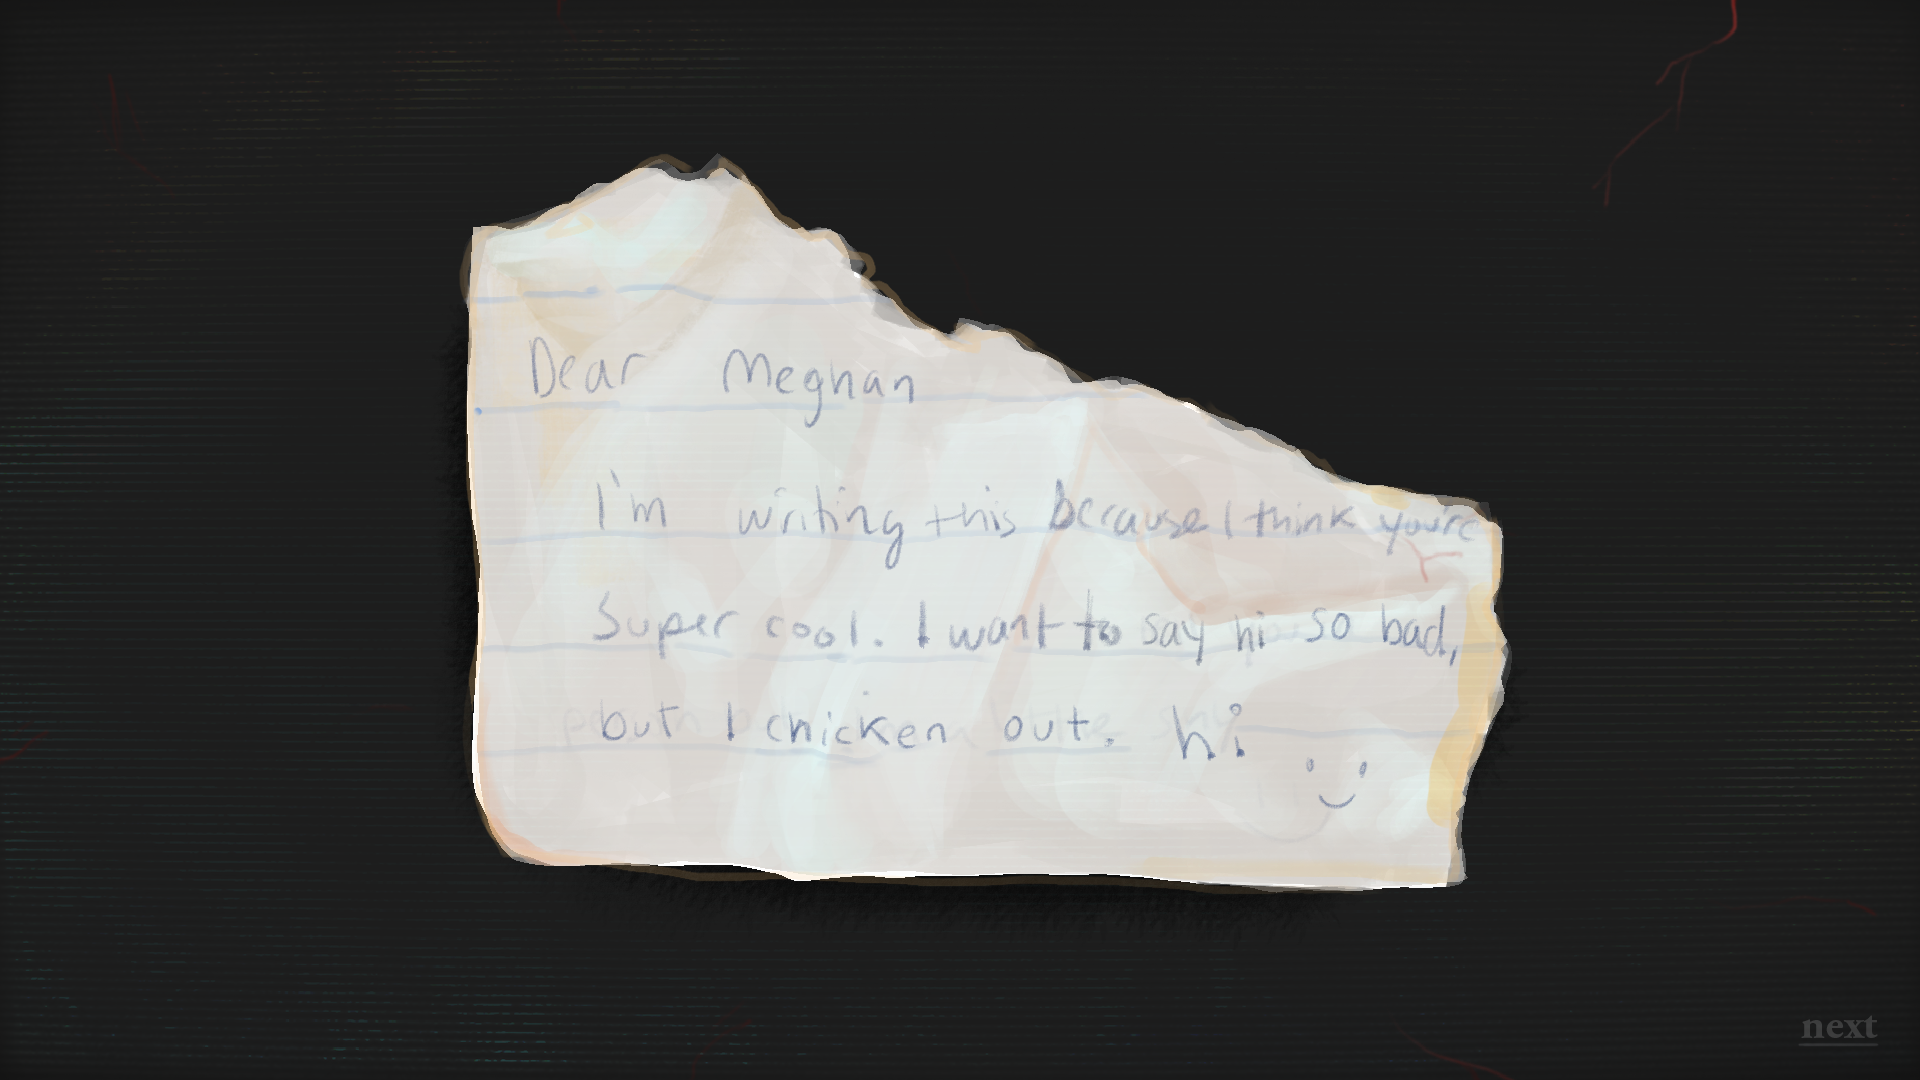 Dear Meghan
I'm writing this because I think you're
super cool. I want to say hi so bad,
but I chicken out. hi
next